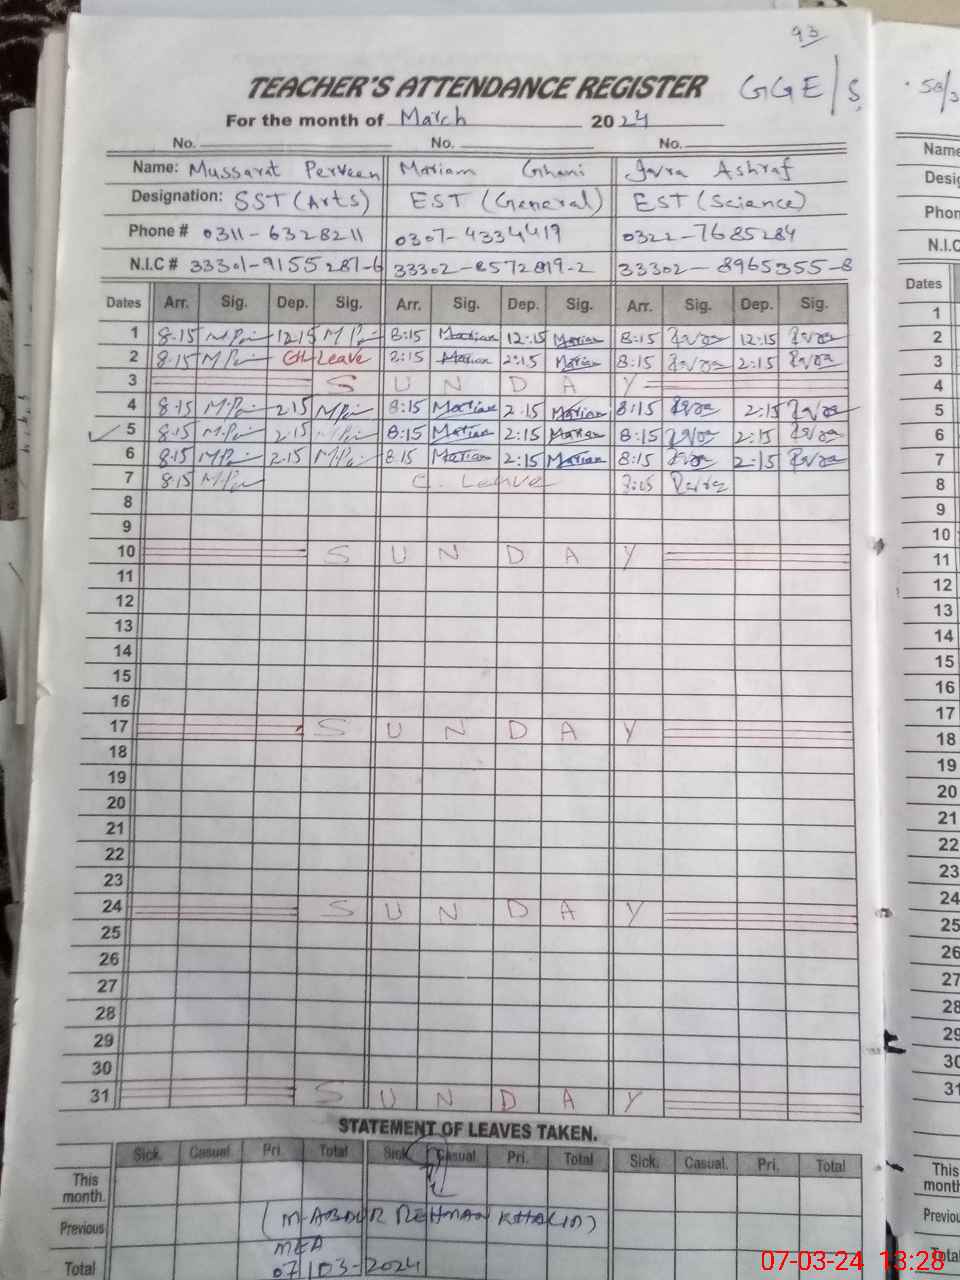 93
TEACHER'S ATTENDANCE REGISTER GGE/S
For the month of March 2024
No. No. No.
Name: Mussarat Perveen Mariam Ghani Iqra Ashraf
Designation: SST (Arts) EST (General) EST (Science)
Phone # 0311-6328211 0307-4334419 0322-7685284
N.I.C # 33301-9155287-6 33302-8572819-2 33302-8965355-8
Dates Arr. Sig. Dep. Sig. Arr. Sig. Dep. Sig. Arr. Sig. Dep. Sig.
1 8.15 12.15 8:15 Mariam 12:15 Mariam 8:15 12:15
2 8.15 Leave 8:15 Mariam 2:15 Mariam 8:15 2:15
3 S U N D A Y
4 8.15 2.15 8:15 Mariam 2:15 Mariam 8:15 2:15
5 8.15 2.15 8:15 Mariam 2:15 Mariam 8:15 2:15
6 8.15 2.15 8:15 Mariam 2:15 Mariam 8:15 2:15
7 8.15 C. Leave
8
9
10 S U N D A Y
11
12
13
14
15
16
17 S U N D A Y
18
19
20
21
22
23
24 S U N D A Y
25
26
27
28
29
30
31 S U N D A Y
STATEMENT OF LEAVES TAKEN.
Sick. Casual. Pri. Total Sick. Casual. Pri. Total Sick. Casual. Pri. Total
This month.
Previous
(M. ABDUR REHMAN KHALID)
MEA
Total 07/03-2024
Name
Desig
Phon
N.I.C
Dates
1
2
3
4
5
6
7
8
9
10
11
12
13
14
15
16
17
18
19
20
21
22
23
24
25
26
27
28
29
30
31
This
month
Previou
Total
07-03-24 13:28